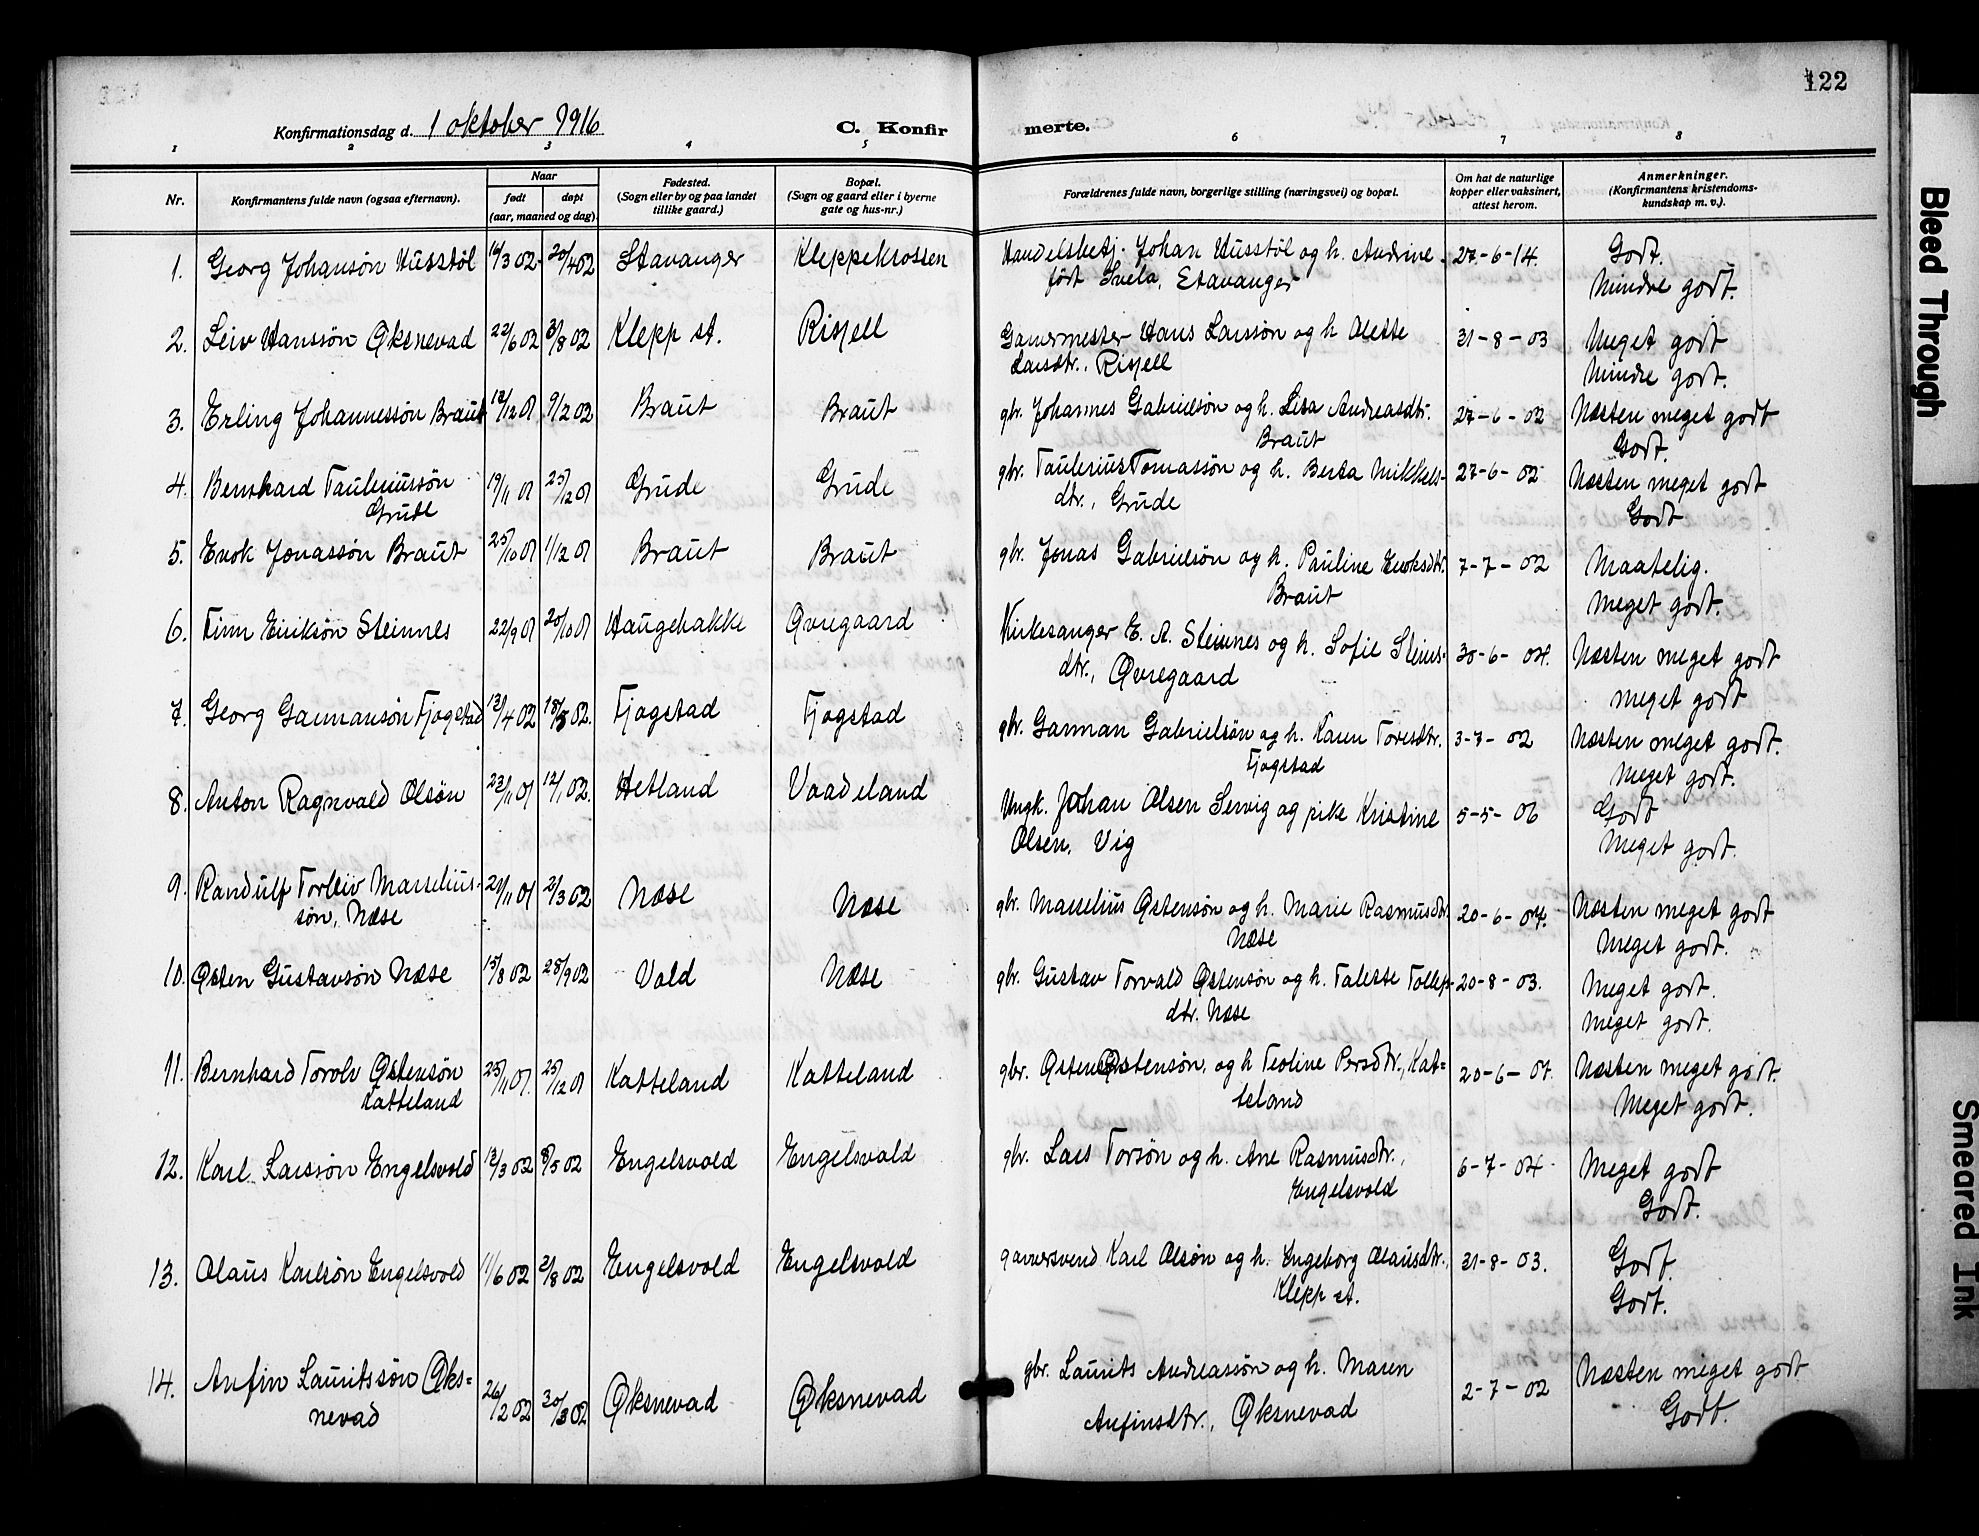 122
Konfirmationsdag d. 1 oktober 1916 C. Konfirmerte.
1 2 3 4 5 6 7 8
Nr. Konfirmantens fulde navn (ogsaa efternavn). Naar født døpt (aar, maaned og dag). Fødested. (Sogn eller by og paa landet tillike gaard.) Bopæl. (Sogn og gaard eller i byerne gate og hus-nr.) Forældrenes fulde navn, borgerlige stilling (næringsvei) og bopæl. Om hat de naturlige kopper eller vaksinert, attest herom. Anmerkninger. (Konfirmantens kristendoms-kundskap m. v.).
1. Georg Johansøn Husstøl 14/3 02. 20/4 02 Stavanger Kleppekrossen Handelsbetj. Johan Husstøl og h. Andrine 27-6-14. Godt.
født Svela, Stavanger Mindre godt.
2. Leiv Hanssøn Øksnevad 22/6 02 3/8 02 Klepp st. Risjell Garvermester Hans Larssøn og h. Olette 31-8-03 Meget godt
Larsdtr., Risjell Mindre godt.
3. Erling Johannessøn Braut 12/12 01 9/2 02 Braut Braut gbr. Johannes Gabrielsøn og h. Lisa Andreasdtr. 27-6-02 Næsten meget godt
Braut Godt.
4. Bernhard Tauleriussøn 19/11 01 25/12 01 Grude Grude gbr. Taulerius Tomassøn og h. Berta Mikkels- 27-6-02 Næsten meget godt
Grude dtr., Grude Godt
5. Enok Jonassøn Braut 25/10 01 1/12 01 Braut Braut gbr. Jonas Gabrielsøn og h. Pauline Enoksdtr. 7-7-02 Maatelig.
Braut Meget godt.
6. Finn Eriksøn Steinnes 22/9 01 20/10 01 Haugebakke Øvregaard Kirkesanger E. A. Steinnes og h. Sofie Steins- 30-6-04. Næsten meget godt
dtr., Øvregaard meget godt
7. Georg Garmansøn Fjogstad 12/4 02 18/5 02. Fjogstad Fjogstad gbr. Garman Gabrielsøn og h. Karen Toresdtr. 3-7-02 Næsten meget godt.
Fjogstad Meget godt.
8. Anton Ragnvald Olsøn 23/11 01 12/1 02. Hetland Vaadeland Ungk. Johan Olsen Servig og pike Kristine 5-5-06 Godt
Olsen, Vig Meget godt.
9. Randulf Torleiv Marselius- 21/11 01 2/3 02 Næse Næse gbr. Marselius Østensøn og h. Marie Rasmusdtr. 20-6-04. Næsten meget godt
søn, Næse Næse Meget godt.
10. Østen Gustavsøn Næse 15/8 02 28/9 02 Vold Næse gbr. Gustav Torvald Østensøn og h. Talette Tollefs- 20-8-03. Meget godt.
dtr. Næse meget godt.
11. Bernhard Torolv Østensøn 25/11 01. 25/12 01 Katteland Katteland gbr. Østen Østensøn, og h. Teoline Persdtr., Kat- 20-6-07. Næsten meget godt.
Katteland teland Meget godt.
12. Karl Larssøn Engelsvold 12/3 02 8/5 02 Engelsvold Engelsvold gbr. Lars Torsøn og h. Ane Rasmusdtr., 6-7-04. Meget godt
Engelsvold Godt.
13. Olaus Karlsøn Engelsvold 11/6 02 2/8 02 Engelsvold Engelsvold garversvend Karl Olsøn og h. Engeborg Olausdtr. 31-8-03. Godt.
Klepp st. Godt.
14. Anfin Lauritssøn Øks= 26/2 02 30/3 02 Øksnevad Øksnevad gbr. Laurits Andreassøn og h. Maren 2-7-02 Næsten meget godt
nevad Anfinsdtr., Øksnevad Godt.
Bleed Through
Smeared Ink